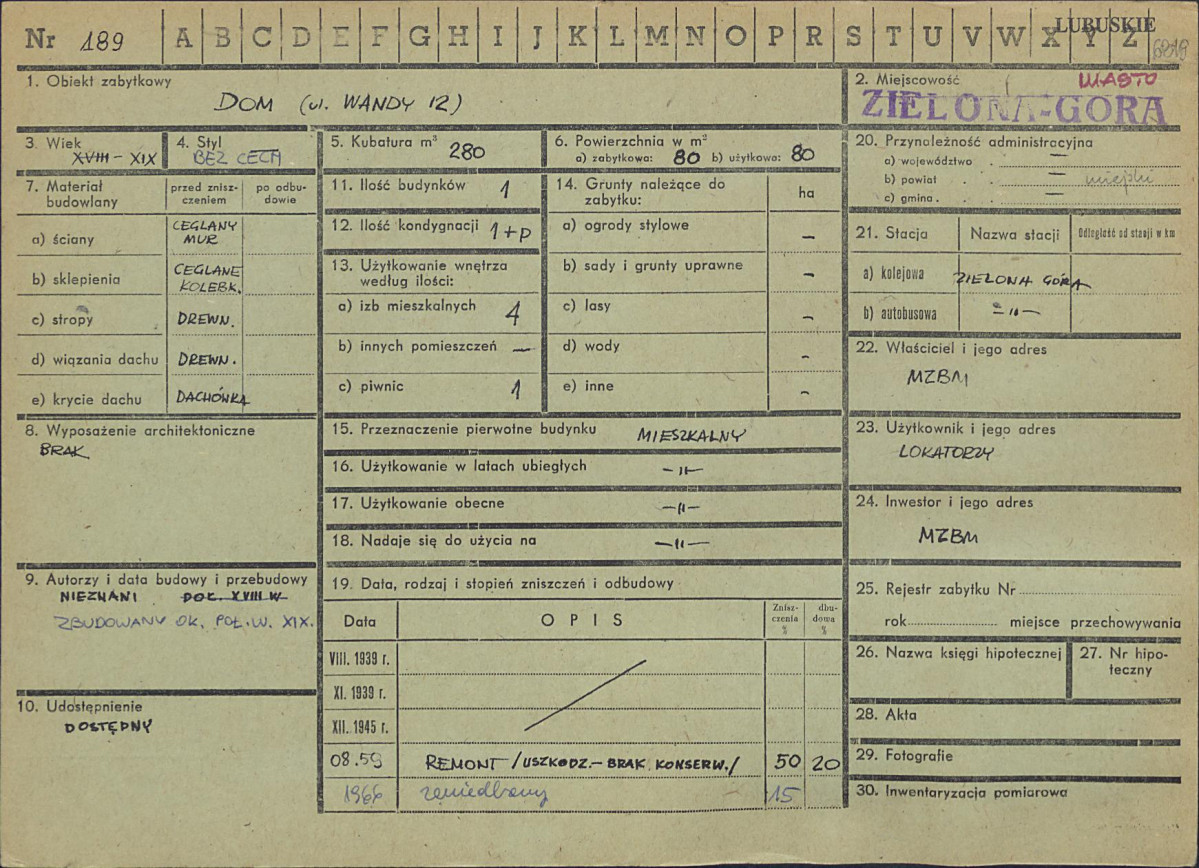 Nr 189 A B C D E F G H I J K L M N O P R S T U V W X Y Z
LUBUSKIE
1. Obiekt zabytkowy
DOM (ul. WANDY 12)
2. Miejscowość MIASTO
ZIELONA-GÓRA
3. Wiek
XVIII - XIX
4. Styl
BEZ CECH
5. Kubatura m³ 280
6. Powierzchnia w m²
a) zabytkowa: 80 b) użytkowa: 80
7. Materiał budowlany
przed znisz-
czeniem
po odbu-
dowie
a) ściany CEGLANY MUR
b) sklepienia CEGLANE KOLEBK.
c) stropy DREWN.
d) wiązania dachu DREWN.
e) krycie dachu DACHÓWKA
8. Wyposażenie architektoniczne
BRAK
9. Autorzy i data budowy i przebudowy
NIEZNANI POŁ. XVIII W
ZBUDOWANY OK. POŁ. W. XIX.
10. Udostępnienie
DOSTĘPNY
11. Ilość budynków 1
12. Ilość kondygnacji 1+P
13. Użytkowanie wnętrza
według ilości:
a) izb mieszkalnych 4
b) innych pomieszczeń —
c) piwnic 1
14. Grunty należące do
zabytku: ha
a) ogrody stylowe —
b) sady i grunty uprawne —
c) lasy —
d) wody -
e) inne -
15. Przeznaczenie pierwotne budynku MIESZKALNY
16. Użytkowanie w latach ubiegłych —„—
17. Użytkowanie obecne —„—
18. Nadaje się do użycia na —„—
19. Data, rodzaj i stopień zniszczeń i odbudowy
Data OPIS
Znisz-
czenia
%
dbu-
dowa
%
VIII. 1939 r.
XI. 1939 r.
XII. 1945 r.
08.59 REMONT /USZKODZ.- BRAK KONSERW./ 50 20
1966 zaniedbany 15
20. Przynależność administracyjna
a) województwo . —
b) powiat . . — miejski
c) gmina . . —
21. Stacja Nazwa stacji Odległość od stacji w km
a) kolejowa ZIELONA GÓRA
b) autobusowa —„—
22. Właściciel i jego adres
MZBM
23. Użytkownik i jego adres
LOKATORZY
24. Inwestor i jego adres
MZBM
25. Rejestr zabytku Nr
rok miejsce przechowywania
26. Nazwa księgi hipotecznej
27. Nr hipo-
teczny
28. Akta
29. Fotografie
30. Inwentaryzacja pomiarowa